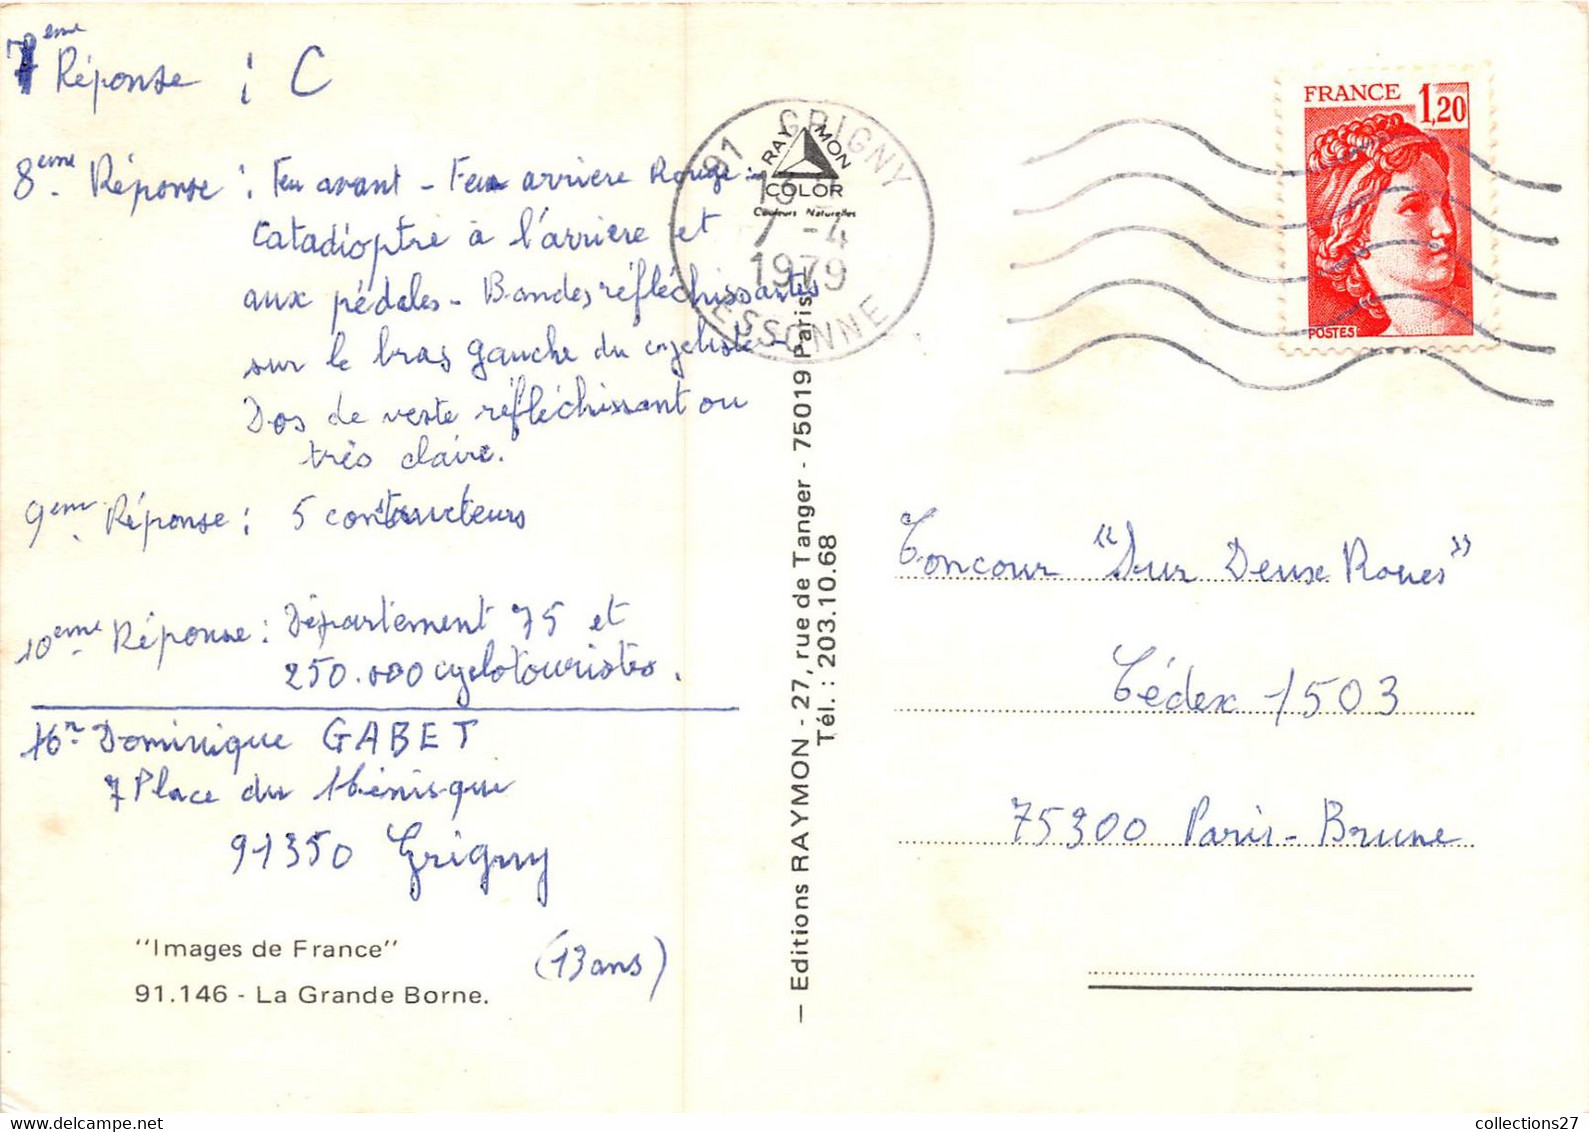 7ème Réponse : C
8ème Réponse : Feu avant - Feu arrière Rouge -
Catadioptre à l'arrière et
aux pédales - Bandes réfléchissantes
sur le bras gauche du cycliste -
Dos de veste réfléchissant ou
très claire.
9ème Réponse : 5 constructeurs
10ème Réponse : Département 75 et
250.000 cyclotouristes.
Dominique GABET
7 Place du Ménisque
91350 Grigny
(13 ans)
"Images de France"
91.146 - La Grande Borne.
RAYMON
COLOR
Couleurs Naturelles
91 GRIGNY
7 - 4
1979
ESSONNE
— Editions RAYMON - 27, rue de Tanger - 75019 Paris
Tél. : 203.10.68
FRANCE 1,20
POSTES
Concour "Sur Deux Roues"
Cédex 1503
75300 Paris-Brune
collections27